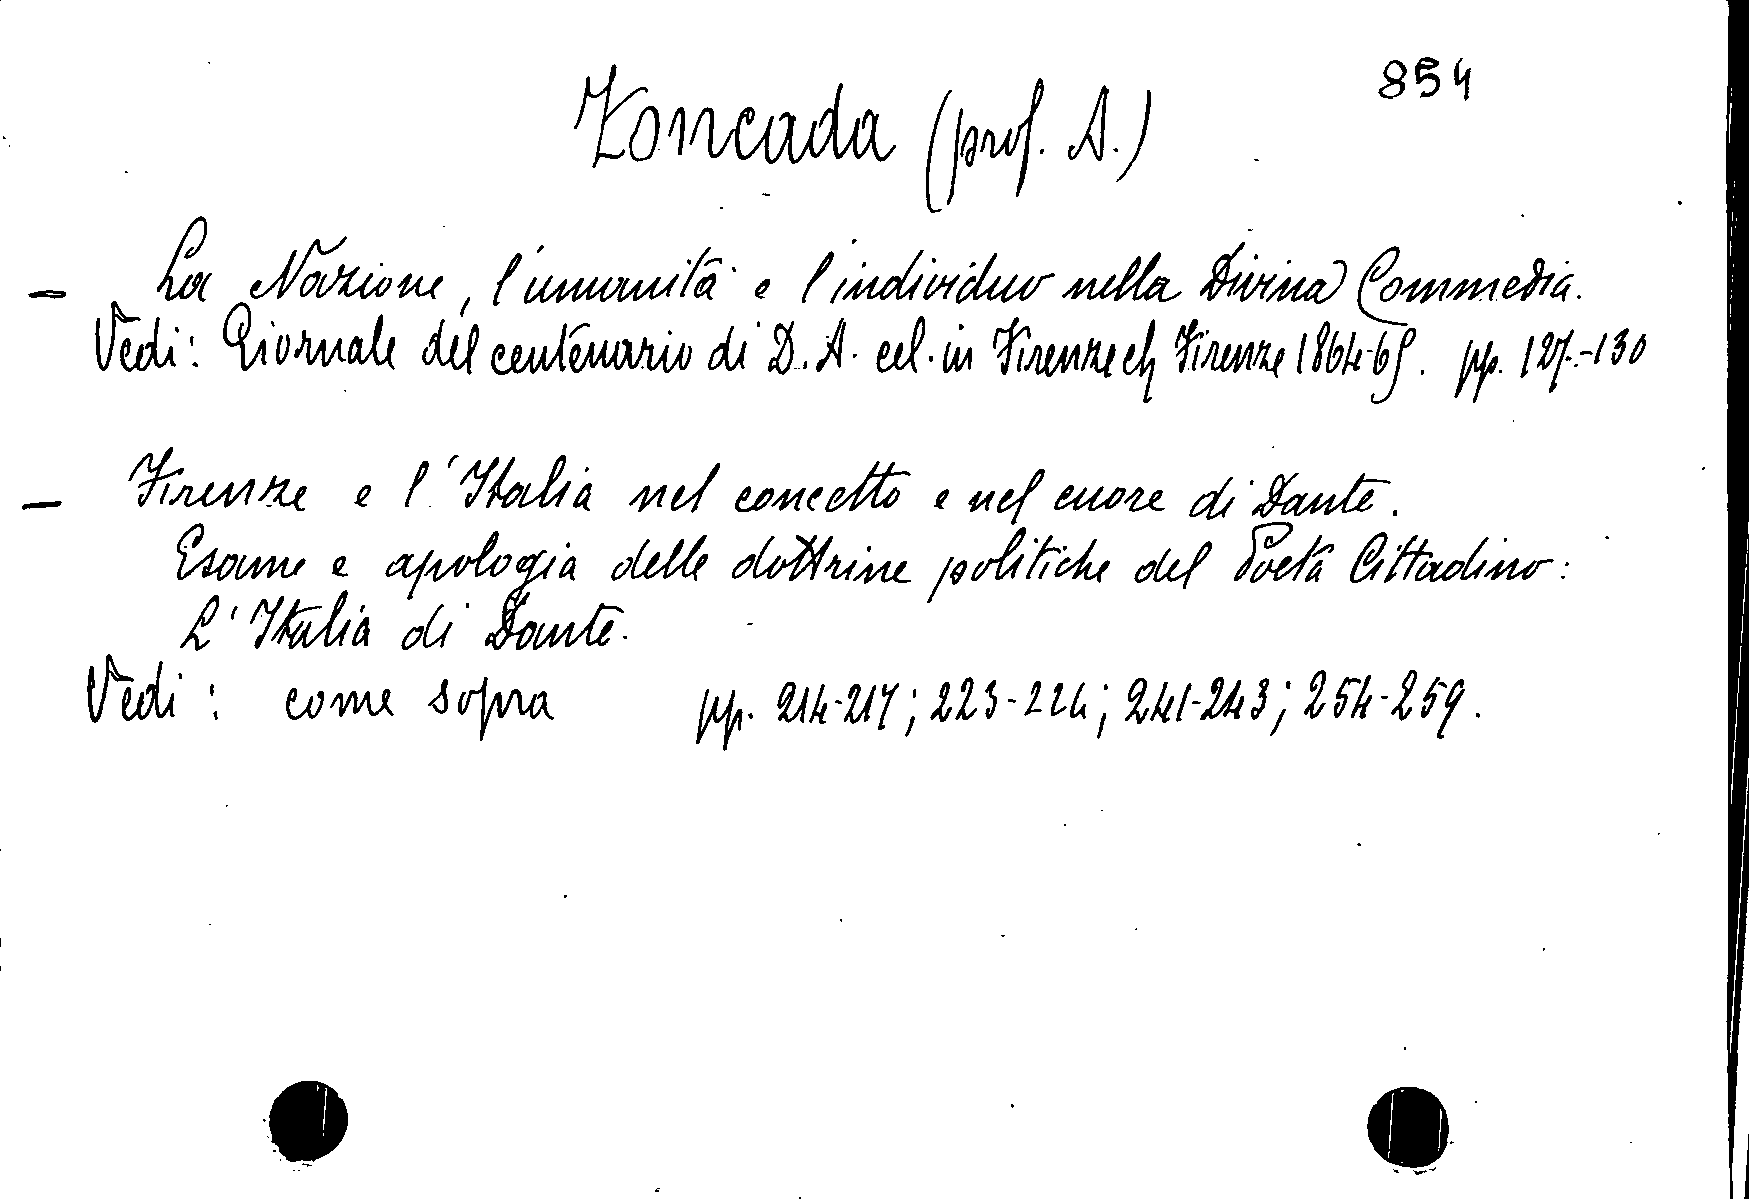 854
Zoncada (prof. A.)
— La Nazione, l'umanità e l'individuo nella Divina Commedia.
Vedi: Giornale del centenario di D. A. cel. in Firenze ch Firenze 1864-65. pp. 127.-130
— Firenze e l'Italia nel concetto e nel cuore di Dante.
Esame e apologia delle dottrine politiche del Poeta Cittadino:
L'Italia di Dante.
Vedi: come sopra pp. 214-217; 223-224; 241-243; 254-259.